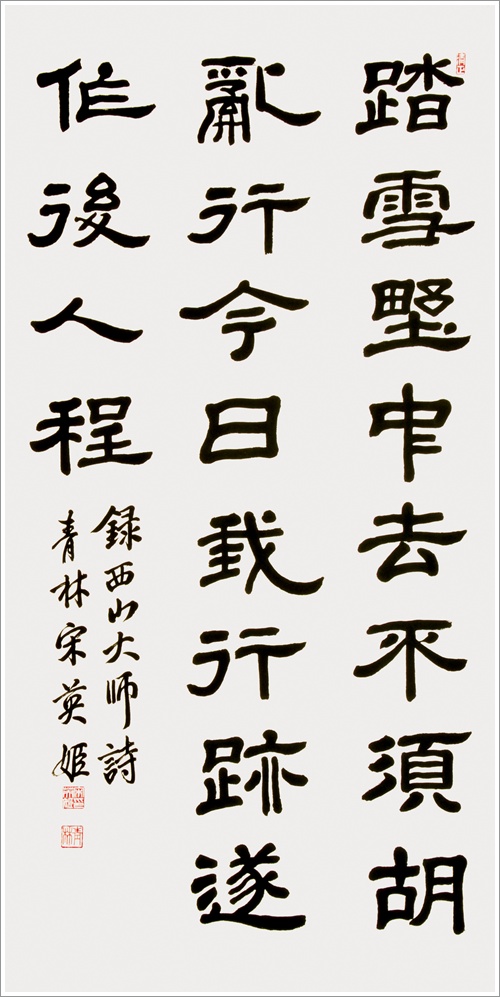 踏雪野中去不須胡
亂行今日我行跡遂
作後人程
録西山大師詩
青林宋英姬